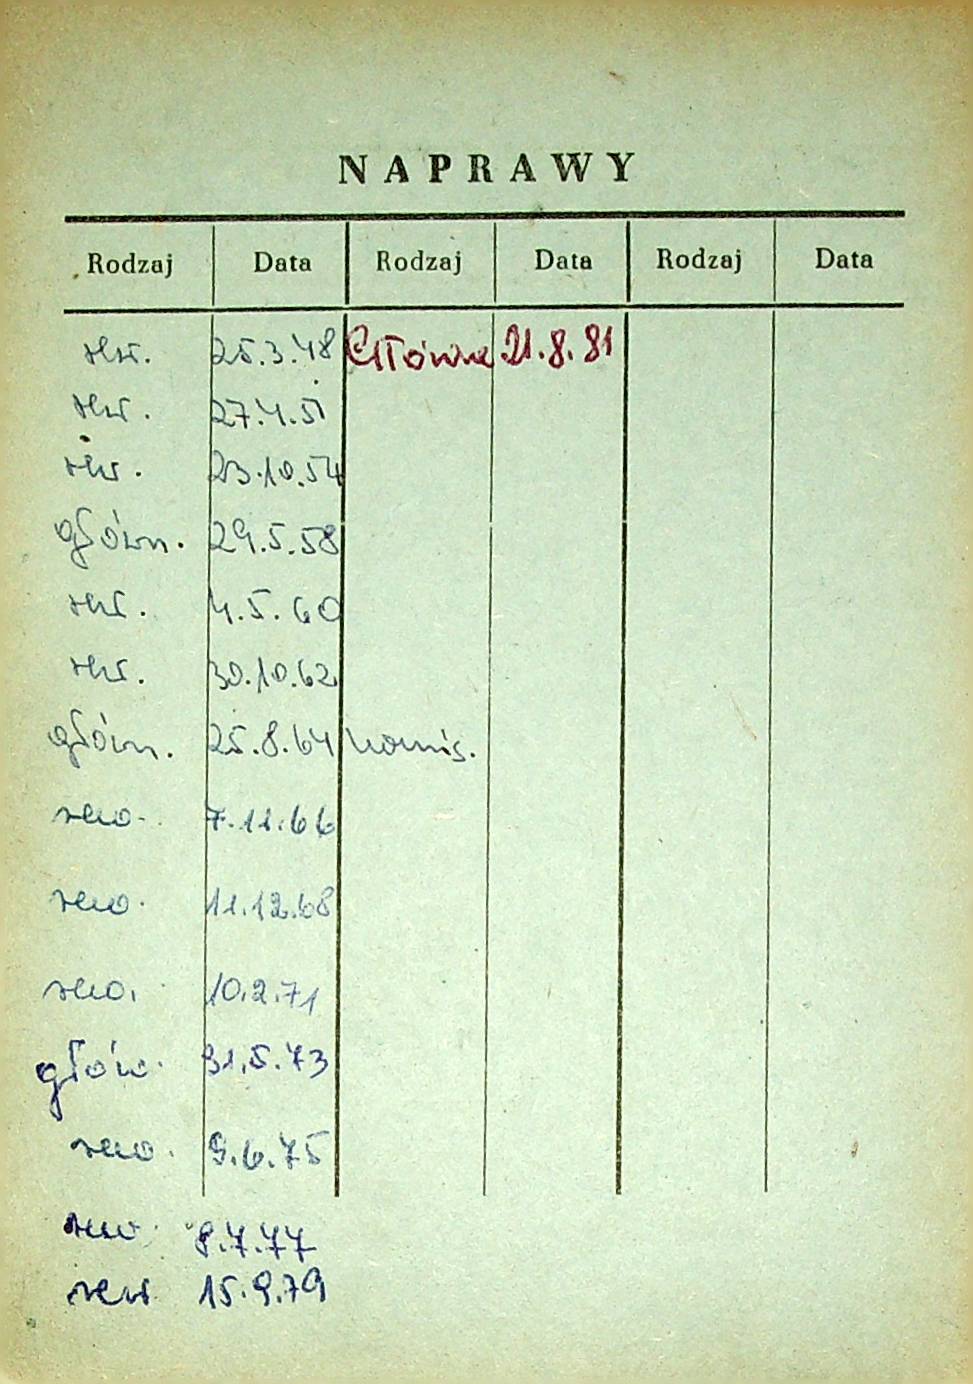 NAPRAWY
Rodzaj Data Rodzaj Data Rodzaj Data
rew. 25.3.48 Główna 21.8.81
rew. 27.4.51
rew. 23.10.54
główn. 29.5.58
rew. 4.5.60
rew. 30.10.62
główn. 25.8.64 komis.
rew. 7.11.66
rew. 11.12.68
rew. 10.2.71
głów. 31.5.73
rew. 9.6.75
rew. 8.7.77
rew 15.9.79